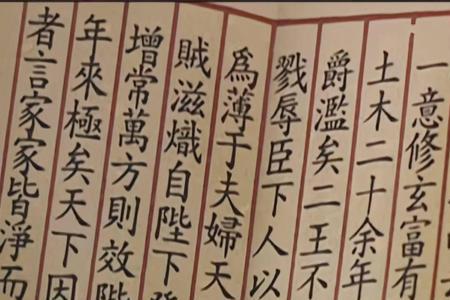 一意修玄富有
土木二十余年
爵濫矣二王不
戮辱臣下人以
為薄于夫婦天
賊滋熾自陛下
增常萬方則效陛
年來極矣天下因
者言家家皆淨而